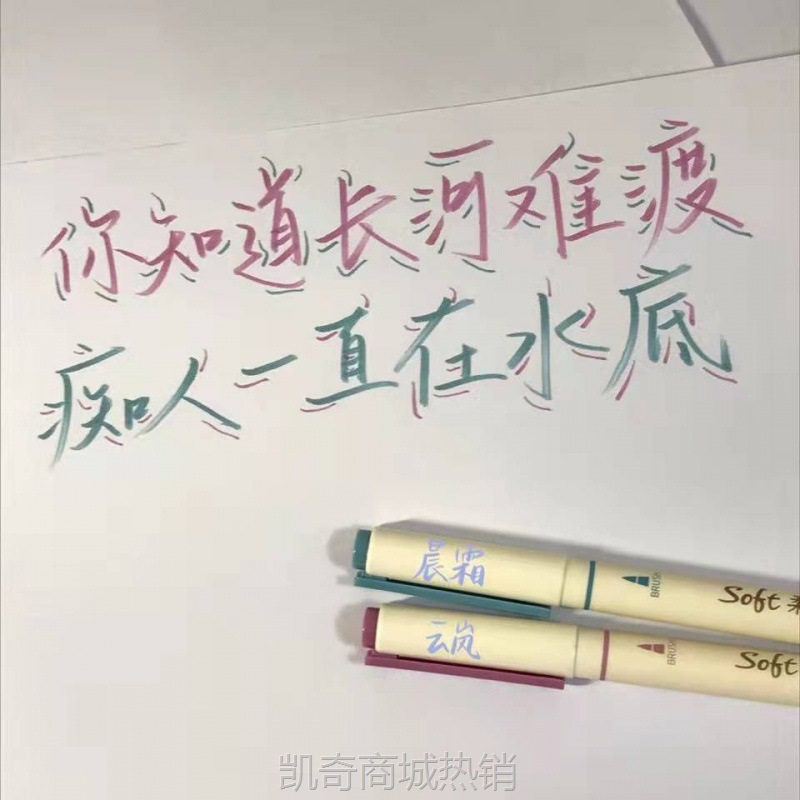 你知道长河难渡
痴人一直在水底
晨霜
BRUSH
Soft 柔
云岚
BRUSH
Soft
凯奇商城热销